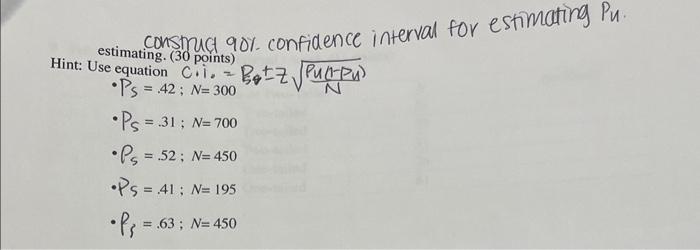 construct 90% confidence interval for estimating Pu.
estimating. (30 points)
Hint: Use equation C.i. = Ps ± Z √Pu(1-Pu)/N
• Ps = .42 ; N= 300
• Ps = .31 ; N= 700
• Ps = .52 ; N= 450
• Ps = .41 ; N= 195
• Ps = .63 ; N= 450